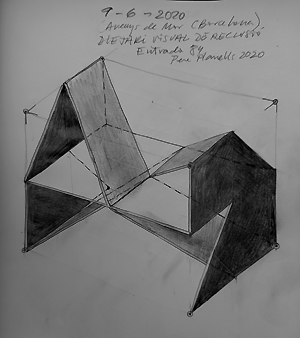 9-6-2020
Arenys de Mar (Barcelona).
DIETARI VISUAL DE RECLUSIÓ
Entrada 84
Pere 2020